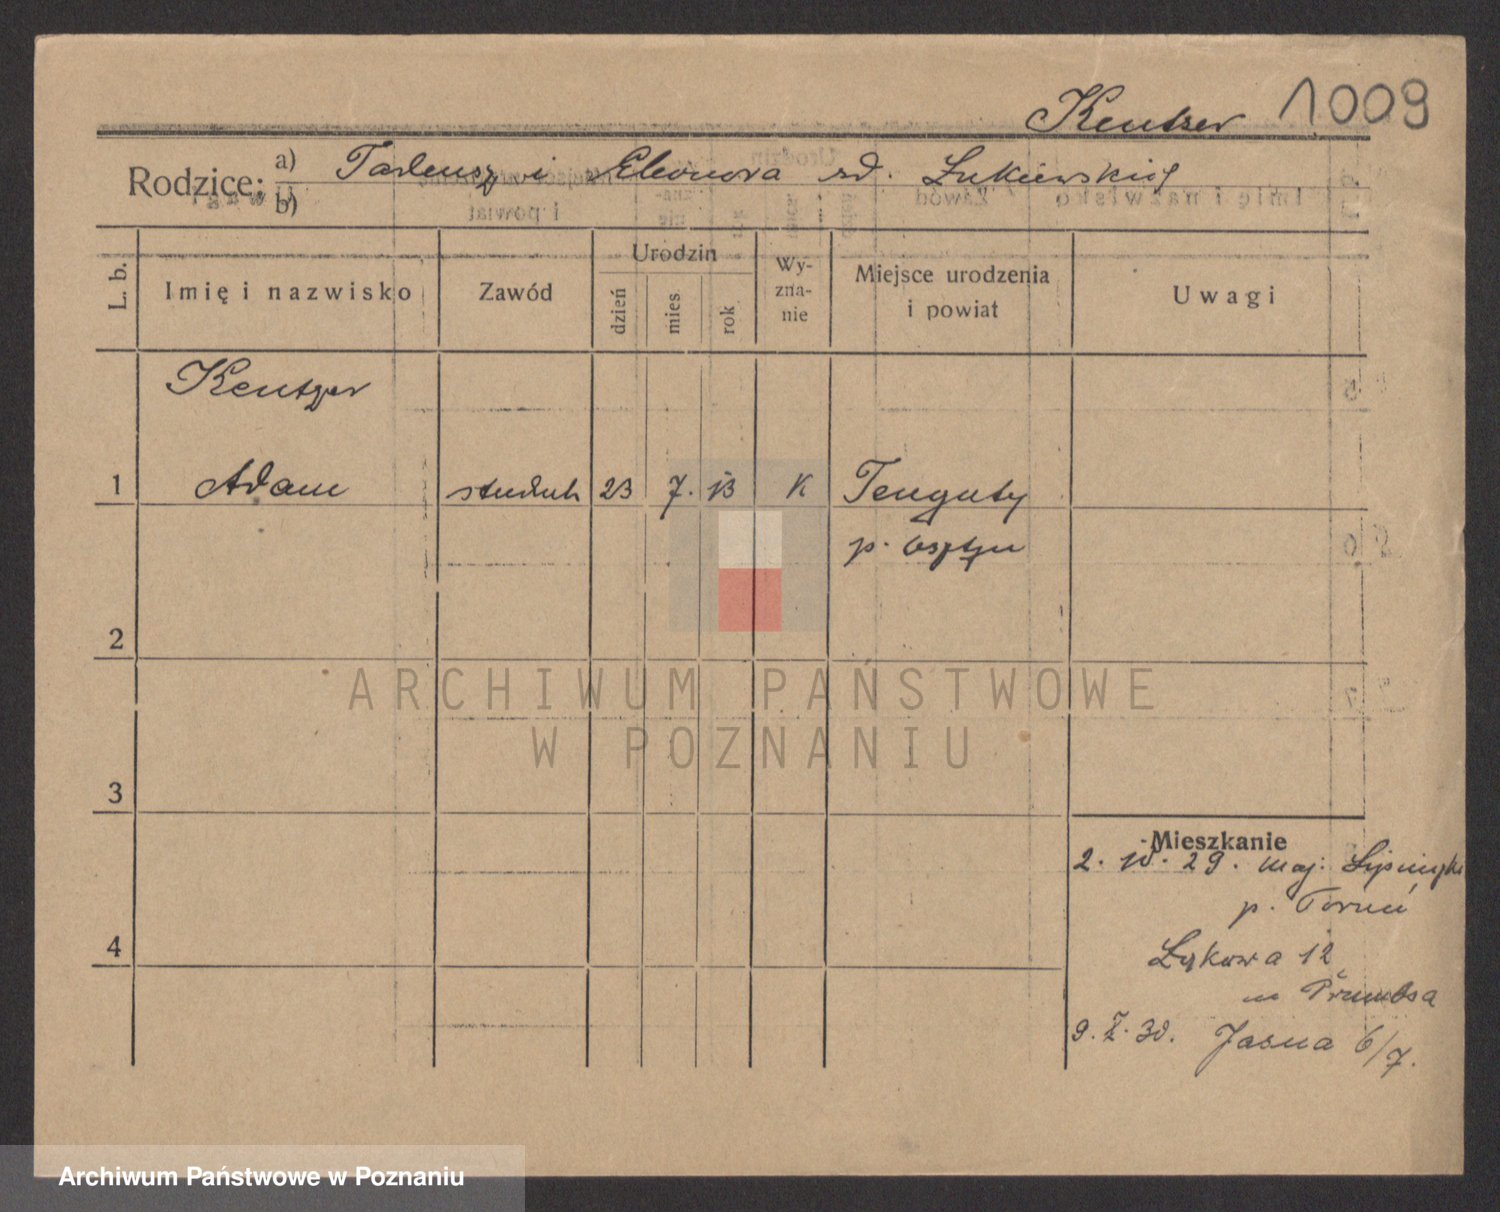 Kentzer 1009
Rodzice: a) Tadeusz i Eleonora zd. Łukiewskich
b)
L. b. Imię i nazwisko Zawód Urodzin dzień mies rok Wy-zna-nie Miejsce urodzenia i powiat Uwagi
Kentzer
1 Adam student 23 7. 13 K Tenguty
p. Osztyn
2
ARCHIWUM PAŃSTWOWE
W POZNANIU
3
Mieszkanie
2. 10. 29. maj.
p. Toruń
4
Łąkowa 12
u
9. X. 30. Jasna 6/7.
Archiwum Państwowe w Poznaniu